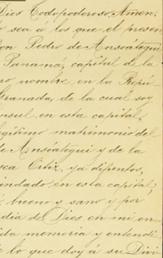 Dios Todopoderoso, Amen.
sea a los que el presen
Don Pedro de Ansoategui
Panamá, capital de la
nombre, en la Repú
Granada, de la cual soy
nsul en esta capital,
legítimo matrimonio del
de Ansoategui y de la
sca Ortiz, ya difuntos,
indado en esta capital,
bueno y sano y por
dia de Dios en mi en
da memoria y entendi
lo que doy á su Divi